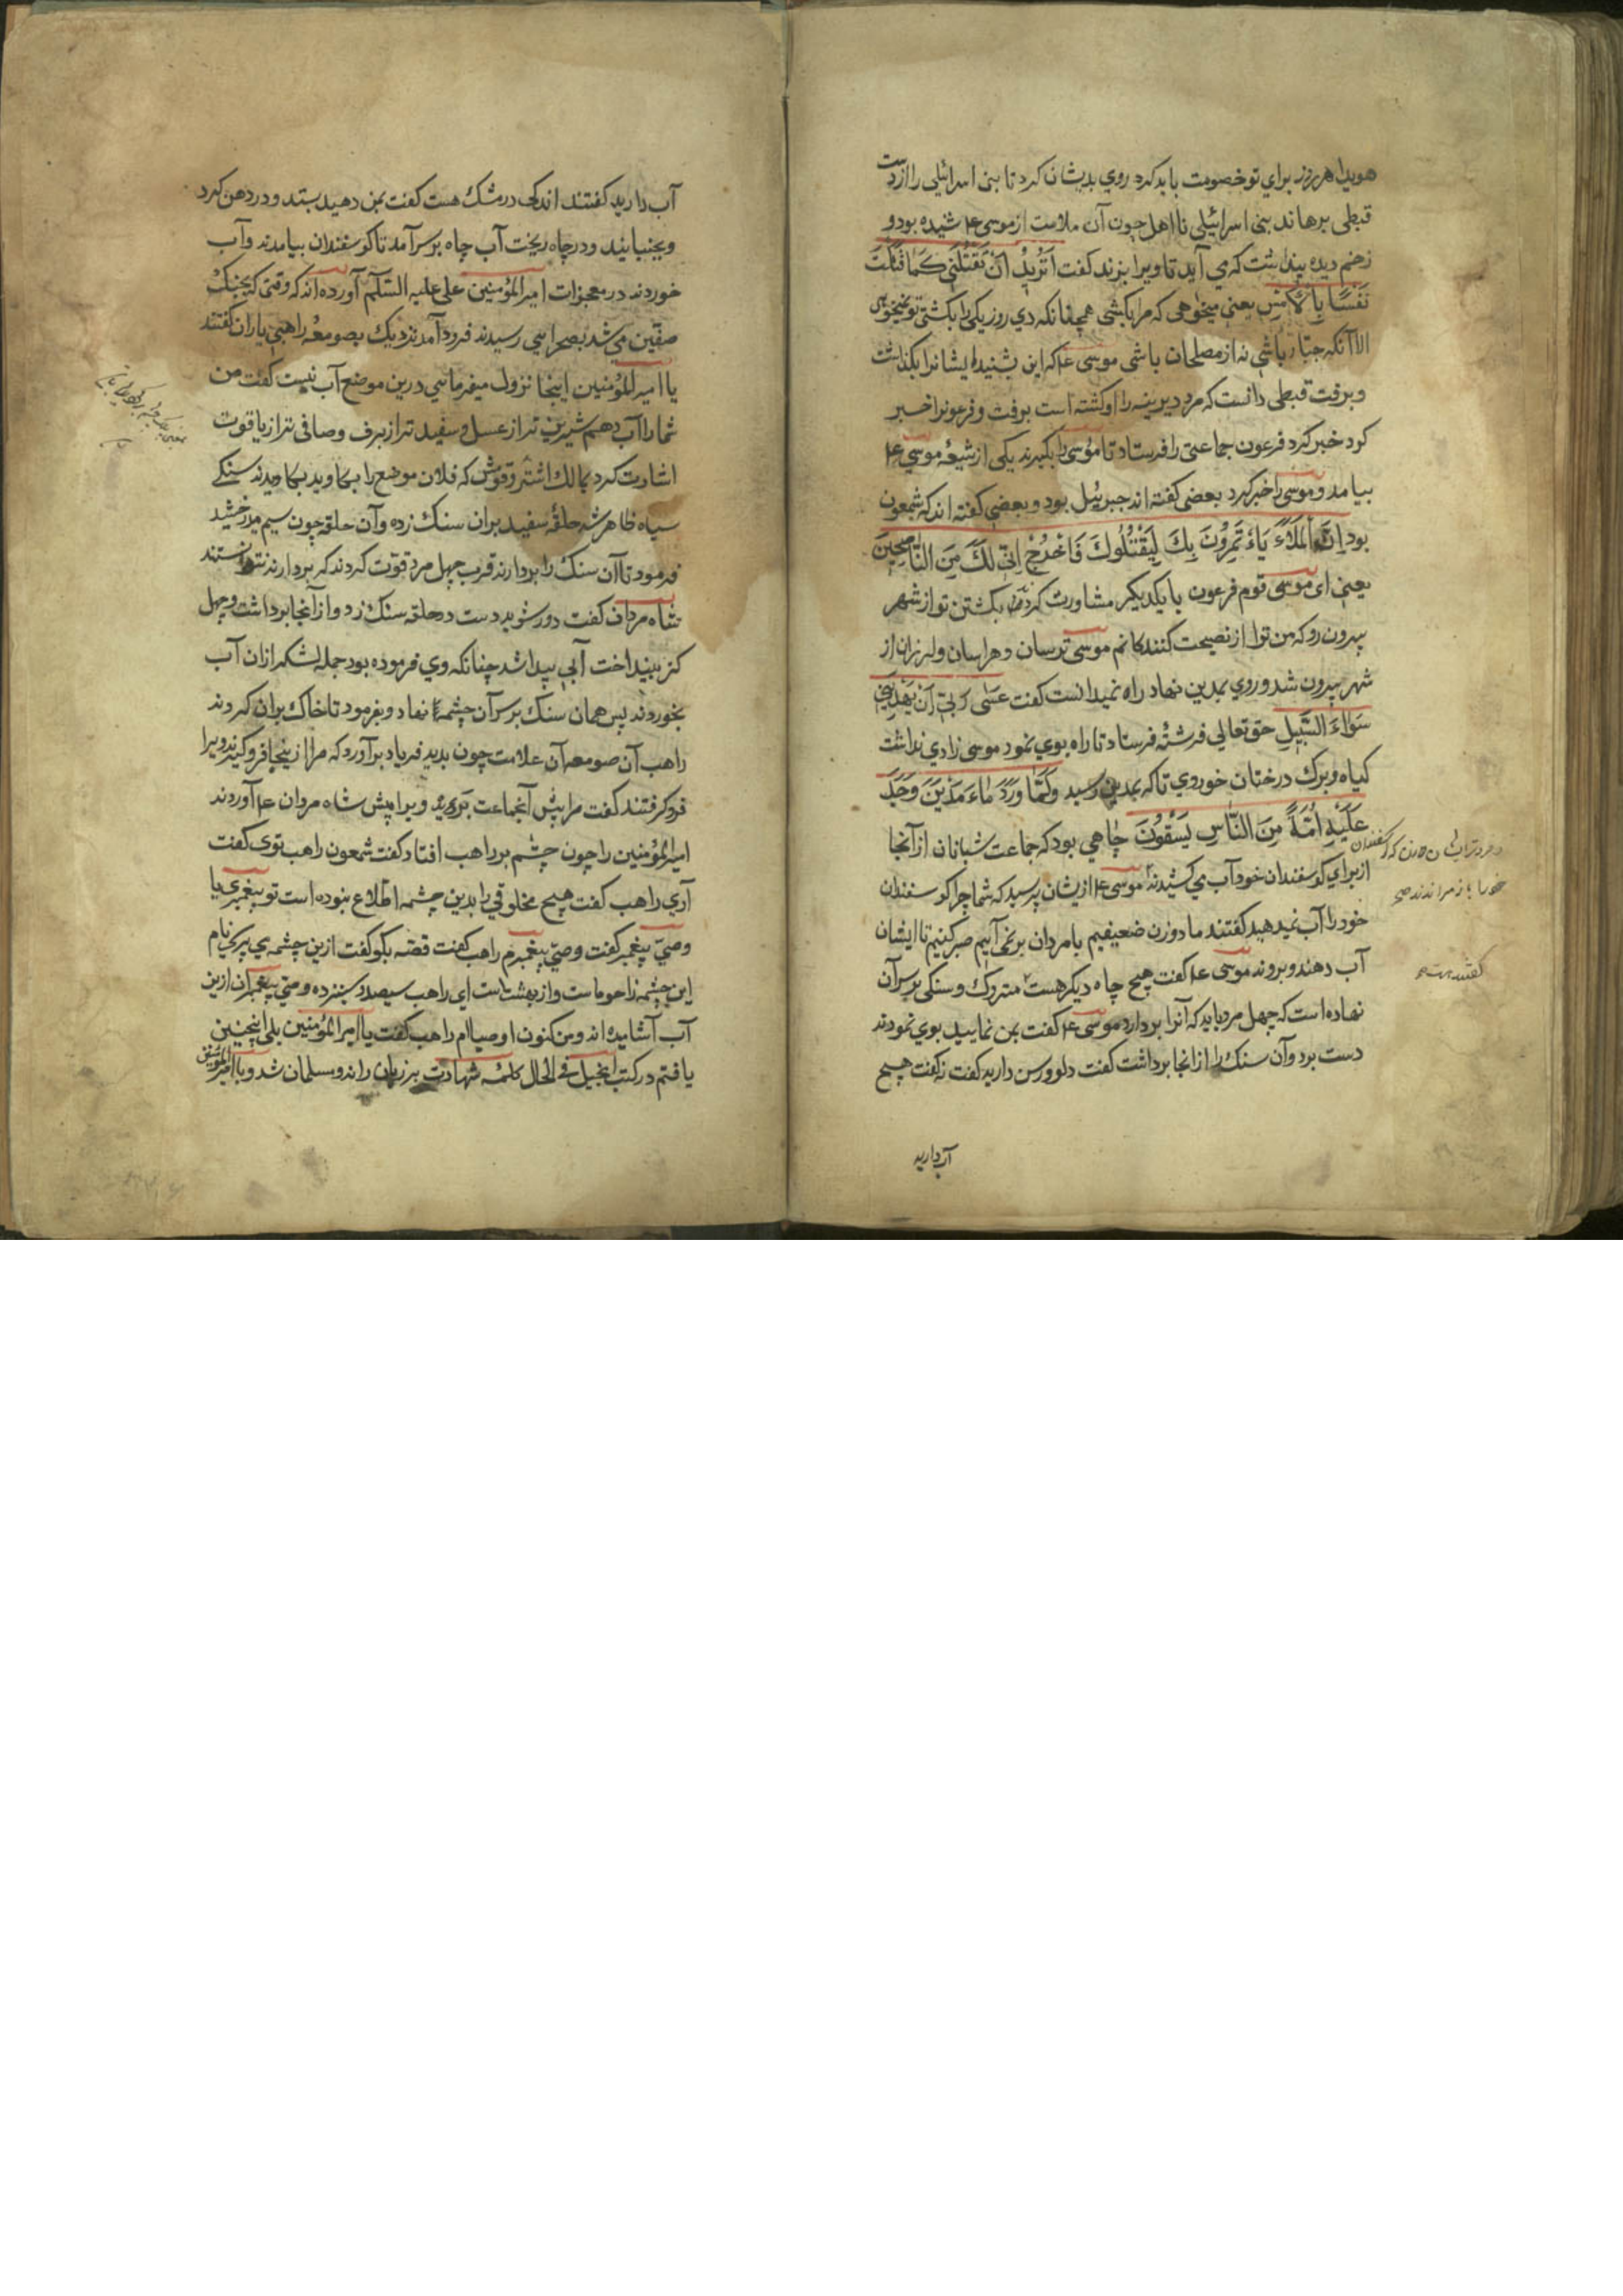 هویدا هر روز برای تو خصومت باید کرد روی بدیشان کرد تا بنی اسرائیلی را از دست
قبطی برهاند بنی اسرائیلی نااهل چون آن ملامت از موسی ع م شنیده بود و
زخم دیده پنداشت که می آید تا ویرا بزند کفت اَتُریدُ اَنْ تَقْتُلَنی کَمَا قَتَلْتَ
نَفْسًا بِالْاَمْسِ یعنی میخواهی که مرا بکشی همچنانکه دی روز یکی را بکشتی تو نمیخواهی
الا آنکه جبّار باشی نه از مصلحان باشی موسی ع م که این بشنید ایشانرا بکذاشت
و برفت قبطی دانست که مرد دیرینه را او کشته است برفت و فرعونرا خبر
کرد خبر کرد فرعون جماعتی را فرستاد تا موسی را بکیرند یکی از شیعهٔ موسی ع م
بیامد و موسی را خبر کرد بعضی کفته اند جبرئیل بود و بعضی کفته اند که شمعون
بود اِنَّ الْمَلَاَءَ یَاْتَمِرُونَ بِكَ لِیَقْتُلُوكَ فَاخْرُجْ اِنّی لَكَ مِنَ النَّاصِحینَ
یعنی ای موسی قوم فرعون با یکدیکر مشاورت کردند بکشتن تو از شهر
بیرون رو که من ترا از نصیحت کنندکانم موسی ترسان و هراسان و لرزان از
شهر بیرون شد و روی بمدین نهاد راه نمیدانست کفت عَسٰی رَبّی اَنْ یَهْدِیَنی
سَوَاءَ السَّبیلِ حق تعالی فرشتهٔ فرستاد تا راه بوی نمود موسی زادی نداشت
کیاه و برك درختان خوردی تا که بمدین رسید وَلَمَّا وَرَدَ مَاءَ مَدْیَنَ وَجَدَ
عَلَیْهِ اُمَّةً مِنَ النَّاسِ یَسْقُونَ چاهی بود که جماعت شبانان از آنجا
از برای کوسفندان خود آب می کشیدند موسی ع م از یشان پرسید که شما چرا کوسفندان
خود را آب نمیدهید کفتند ما دو زن ضعیفیم با مردان بر نمی آییم صبر کنیم تا ایشان
آب دهند و بروند موسی ع م کفت هیچ چاه دیکر هست متروك و سنکی بر سر آن
نهاده است که چهل مرد باید که آنرا بردارد موسی ع م کفت بمن نمایید بوی نمودند
دست برد و آن سنك را از انجا برداشت کفت دلو و رسن دارید کفت نه کفت هیچ
کفتند هست
آب دارید
آب دارید کفتند اندکی در مشك هست کفت بمن دهید بستد و در دهن کرد
و بجنبانید و در چاه ریخت آب چاه بر سر آمد تا کوسفندان بیامدند و آب
خوردند در معجزات امیر المؤمنین علی علیه السّلام آورده اند که وقتی که بجنك
صفّین می شد بصحرایی رسیدند فرود آمدند نزدیك بصومعهٔ راهبی یاران کفتند
یا امیر المؤمنین اینجا نزول میفرمایی درین موضع آب نیست کفت من
شما را آب دهم شیرین تر از عسل و سفید تر از برف و صافی تر از یاقوت
اشارت کرد بمالك اشتر و قومش که فلان موضع را بکاوید بکاویدند سنکی
سیاه ظاهر شد حلقهٔ سفید بران سنك زده و آن حلقه چون سیم میدرخشید
فرمود تا آن سنك را بردارند قرب چهل مرد قوّت کردند که بردارند نتوانستند
شاه مردان کفت دور شوید دست در حلقه سنك زد و از آنجا برداشت و چهل
کز بینداخت آبی پیدا شد چنانکه وی فرموده بود جمله لشکر ازان آب
بخوردند پس همان سنك بر سر آن چشمه نهاد و بفرمود تا خاك بران کردند
راهب آن صومعه آن علامت چون بدید فریاد برآورد که مرا ازینجا فرو کیرند ویرا
فرو کرفتند کفت مرا پیش آنجماعت برید ویرا پیش شاه مردان ع م آوردند
امیر المؤمنین را چون چشم بر راهب افتاد کفت شمعون راهب توی کفت
آری راهب کفت هیچ مخلوقی را بدین چشمه اطلاع نبوده است تو پیغمبری یا
وصیّ پیغمبر کفت وصیّ پیغمبرم راهب کفت قصّه بکو کفت ازین چشمه می پرسی نام
این چشمه زاحوماست و از بهشت است ای راهب سیصد و سیزده وصیّ پیغمبران ازین
آب آشامیده اند و من کنون اوصیاام راهب کفت یا امیر المؤمنین بلی اینچنین
یافتم در کتب انجیل فی الحال کلمهٔ شهادت بر زبان راند و مسلمان شد و با امیر المؤمنین